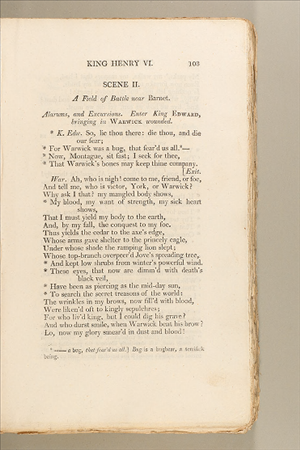 KING HENRY VI. 103
SCENE II.
A Field of Battle near Barnet.
Alarums, and Excursions. Enter King EDWARD,
bringing in WARWICK wounded.
* K. Edw. So, lie thou there: die thou, and die
our fear;
* For Warwick was a bug, that fear'd us all.*—
* Now, Montague, sit fast; I seek for thee,
* That Warwick's bones may keep thine company.
[Exit.
War. Ah, who is nigh? come to me, friend, or foe,
And tell me, who is victor, York, or Warwick?
Why ask I that? my mangled body shows,
* My blood, my want of strength, my sick heart
shows,
That I must yield my body to the earth,
And, by my fall, the conquest to my foe.
Thus yields the cedar to the axe's edge,
Whose arms gave shelter to the princely eagle,
Under whose shade the ramping lion slept;
Whose top-branch overpeer'd Jove's spreading tree,
* And kept low shrubs from winter's powerful wind.
* These eyes, that now are dimm'd with death's
black veil,
* Have been as piercing as the mid-day sun,
* To search the secret treasons of the world:
The wrinkles in my brows, now fill'd with blood,
Were liken'd oft to kingly sepulchres;
For who liv'd king, but I could dig his grave?
And who durst smile, when Warwick bent his brow?
Lo, now my glory smear'd in dust and blood!
—— a bug, that fear'd us all.] Bug is a bugbear, a terrifick
being.